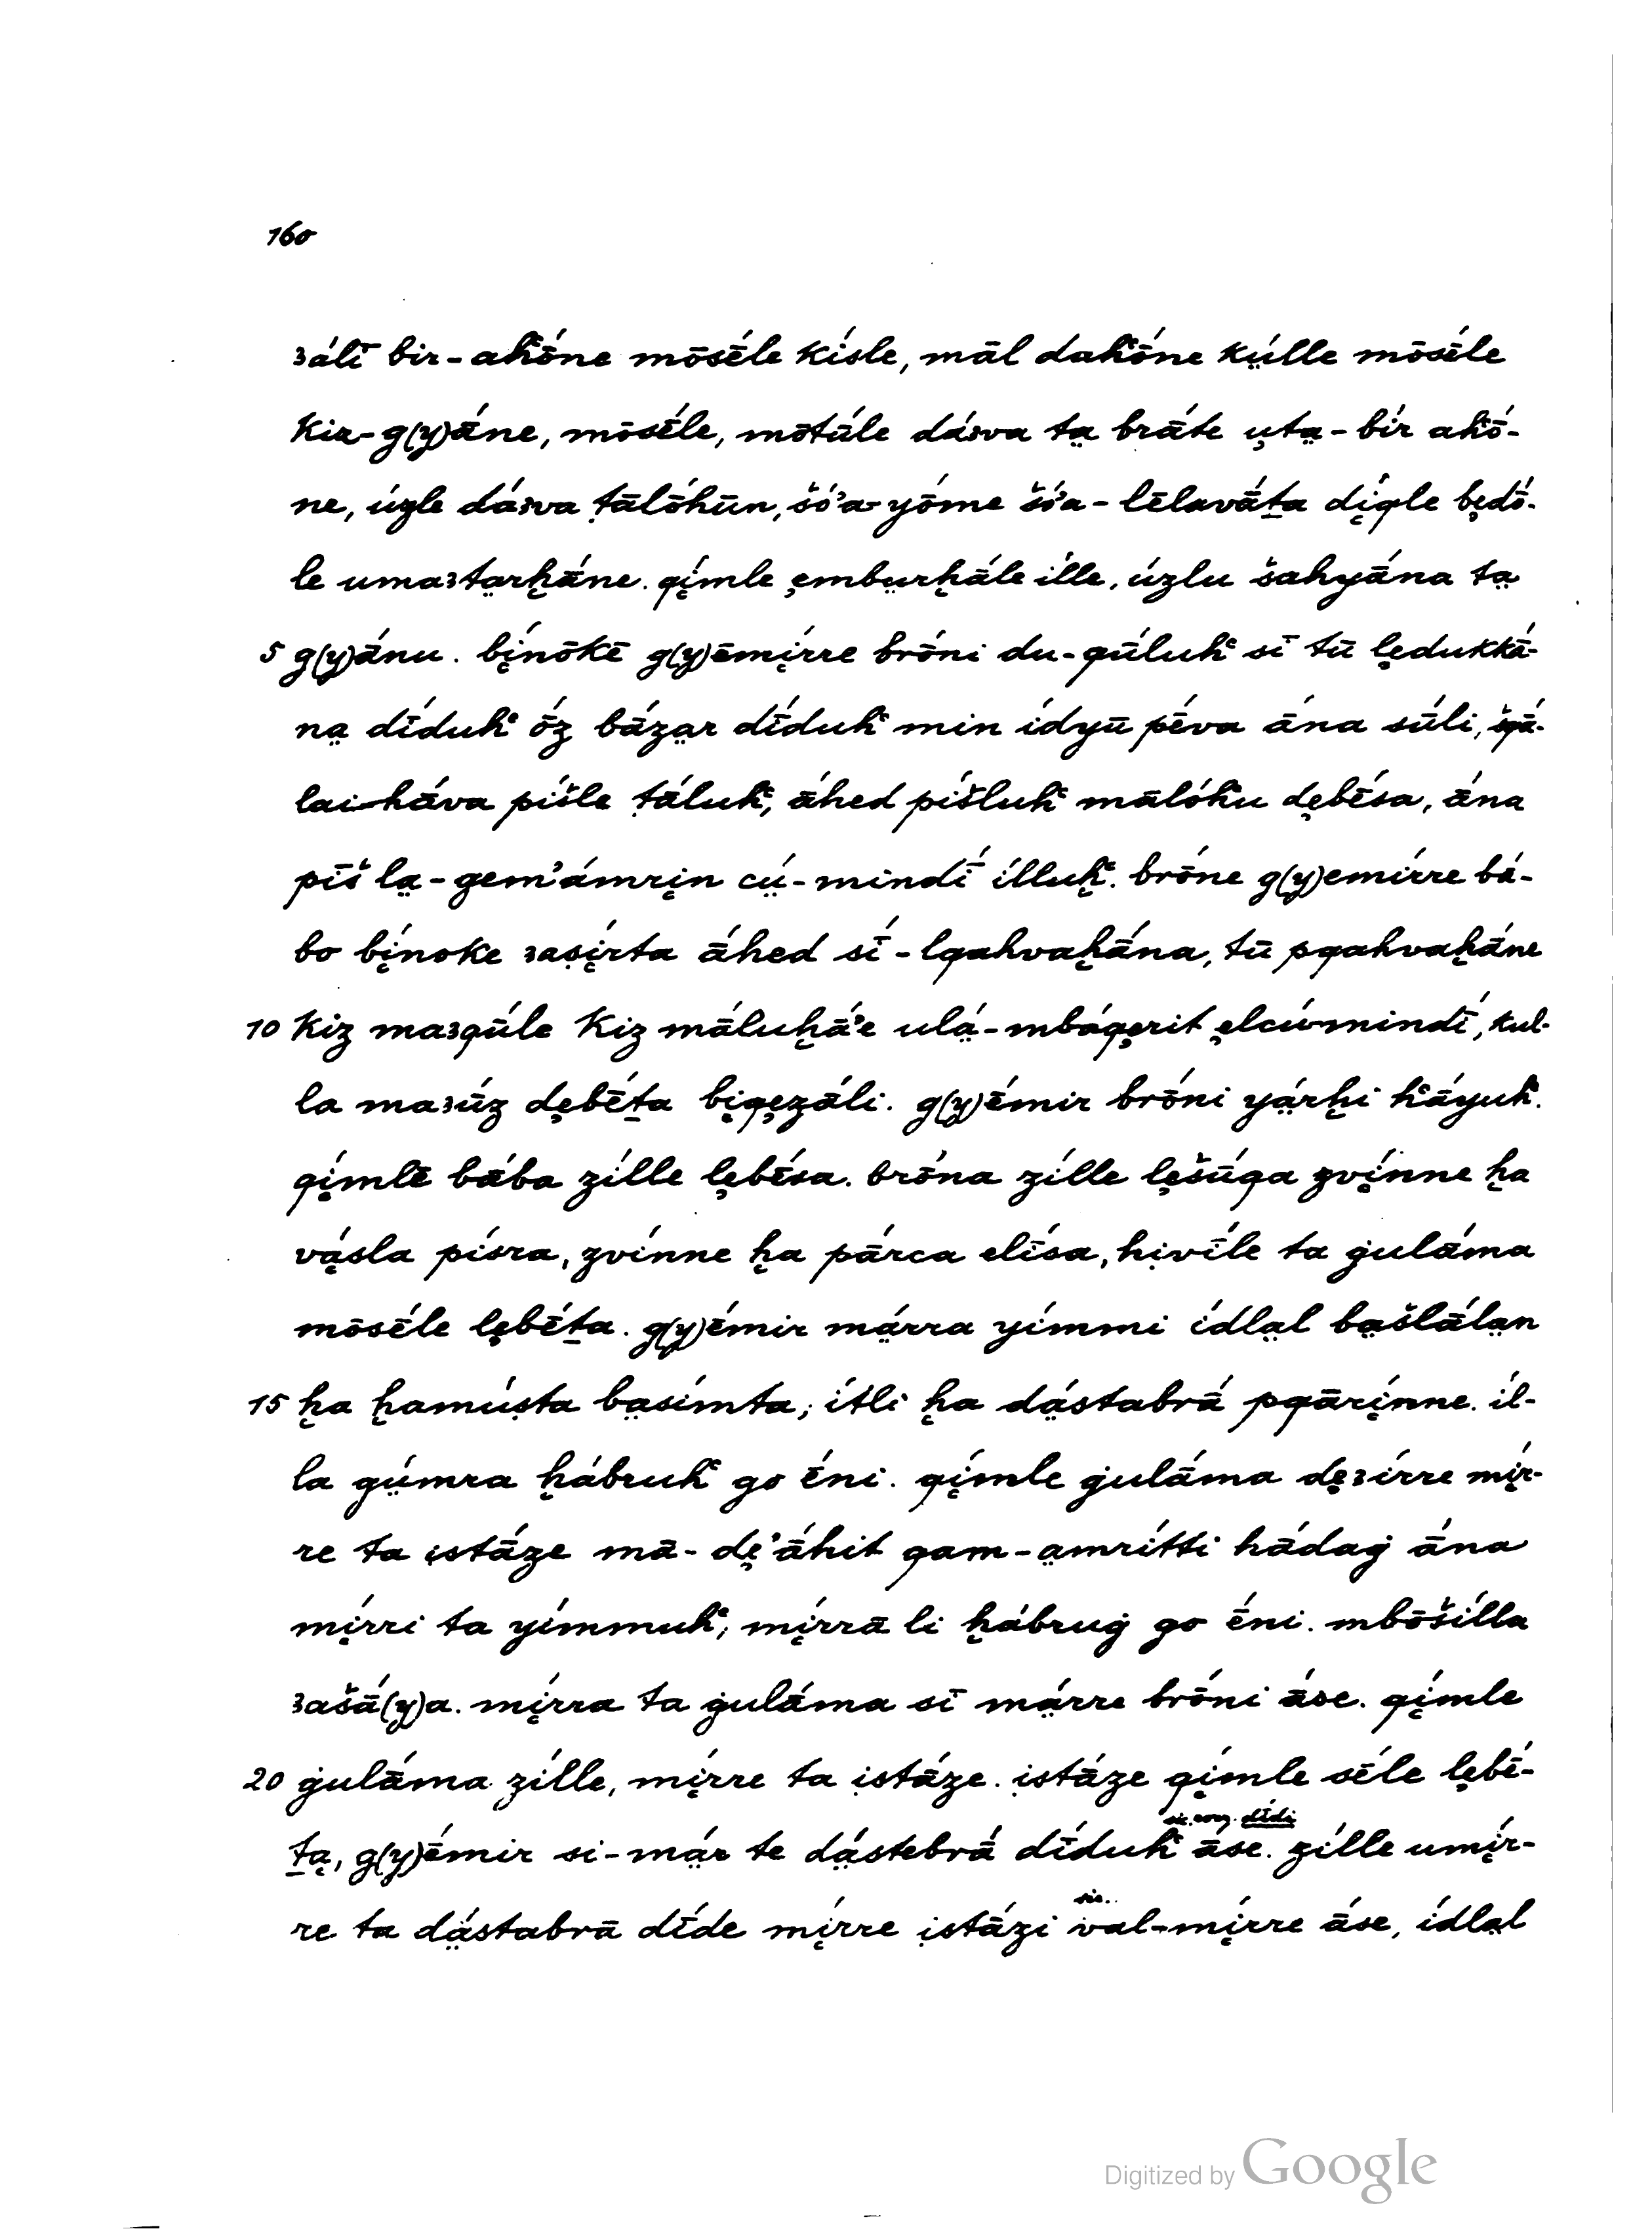 160
ꜣálī bir-aḣṓne mōsḗle kísle, māl daḣṓne kṳ́lle mōsḗle
Kiz-g(y)ā́ne, mōsḗle, mōtū́le dáꜣva ta̤ brā́te ṷta̤-bír aḣṓ-
ne, úzle dáꜣva ṭālṓhūn, šṓ'a-yōme šṓ'a-lēlavā́ṯa dí̜qle bȩdṓ-
le umaꜣta̤rḫā́ne. qí̜mle ȩmbṳrḫā́le ílle, úzlu šahyā́na ta̤
5 g(y)ā́nu. bí̜nōkē g(y)ēmí̜rre brṓni du-qū́luḣ sī tū lȩdukkā́-
na̤ dī́duḣ ṓz bā́za̤r dī́duḣ min ídyū pḗva ā́na sū́li, šqā́-
lai-hā́va píšle ṭā́luḣ, ā́hed píšluḣ mālṓḣu dȩbḗsa, ā́na
pīš la̤-gem'ámri̜n cṳ́-mindī́ ílluḫ̇. brṓne g(y)emírre bā́-
bo bí̜noke ꜣaṣí̜rta ā́hed sī́-lqahvaḫā́na, tū pqahvaḫā́ne
10 Kiz maꜣqū́le Kiz māluḫā́'e ula̤-mbáqȩrit ȩlcú-mindī́, kul-
la maꜣū́z dȩbḗṯa bi̜qȩzā́li. g(y)ḗmir brṓni ya̤rḫi ḣā́yuḣ.
qí̜mlē bā́ba zílle lȩbḗsa. brṓna zílle lȩšū́qa zví̜nne ḫa
vá̜sla písra, zvínne ḫa pā́rca elī́sa, hi̜vī́le ta ġulā́ma
mōsḗle lȩbḗṯa. g(y)ḗmir má̤rra yímmi ídla̤l ba̤šlā́la̤n
15 ḫa ḫamúṣta ba̤símta, ítli ḫa dá̤stabrā́ pqārí̜nne. íl-
la gṳ́mra ḫábruḣ go ḗni. qí̜mle ġulā́ma dȩꜣírre mí̜r-
re ta istā́ze mā-dȩ'ā́hit qam-a̤mrítti hā́daġ ā́na
mí̜rri ta yímmuḣ, mí̜rrā li ḫábruġ go ḗni. mbōšílla
ꜣašā́(y)a. mí̜rra ta ġulā́ma sī má̤rre brṓni ā́se. qí̜mle
20 ġulā́ma zílle, mí̜rre ta i̜stā́ze. i̜stā́ze qí̜mle sḗle lȩbḗ-
ṯa̜, g(y)ḗmir si-ma̤r te dá̤stebrā́ dī́duḣ ā́se. zílle umí̜r-
re ta dá̤stabrā dī́de mí̜rre i̜stā́zi val-mí̜rre ā́se, ídla̤l
Digitized by Google